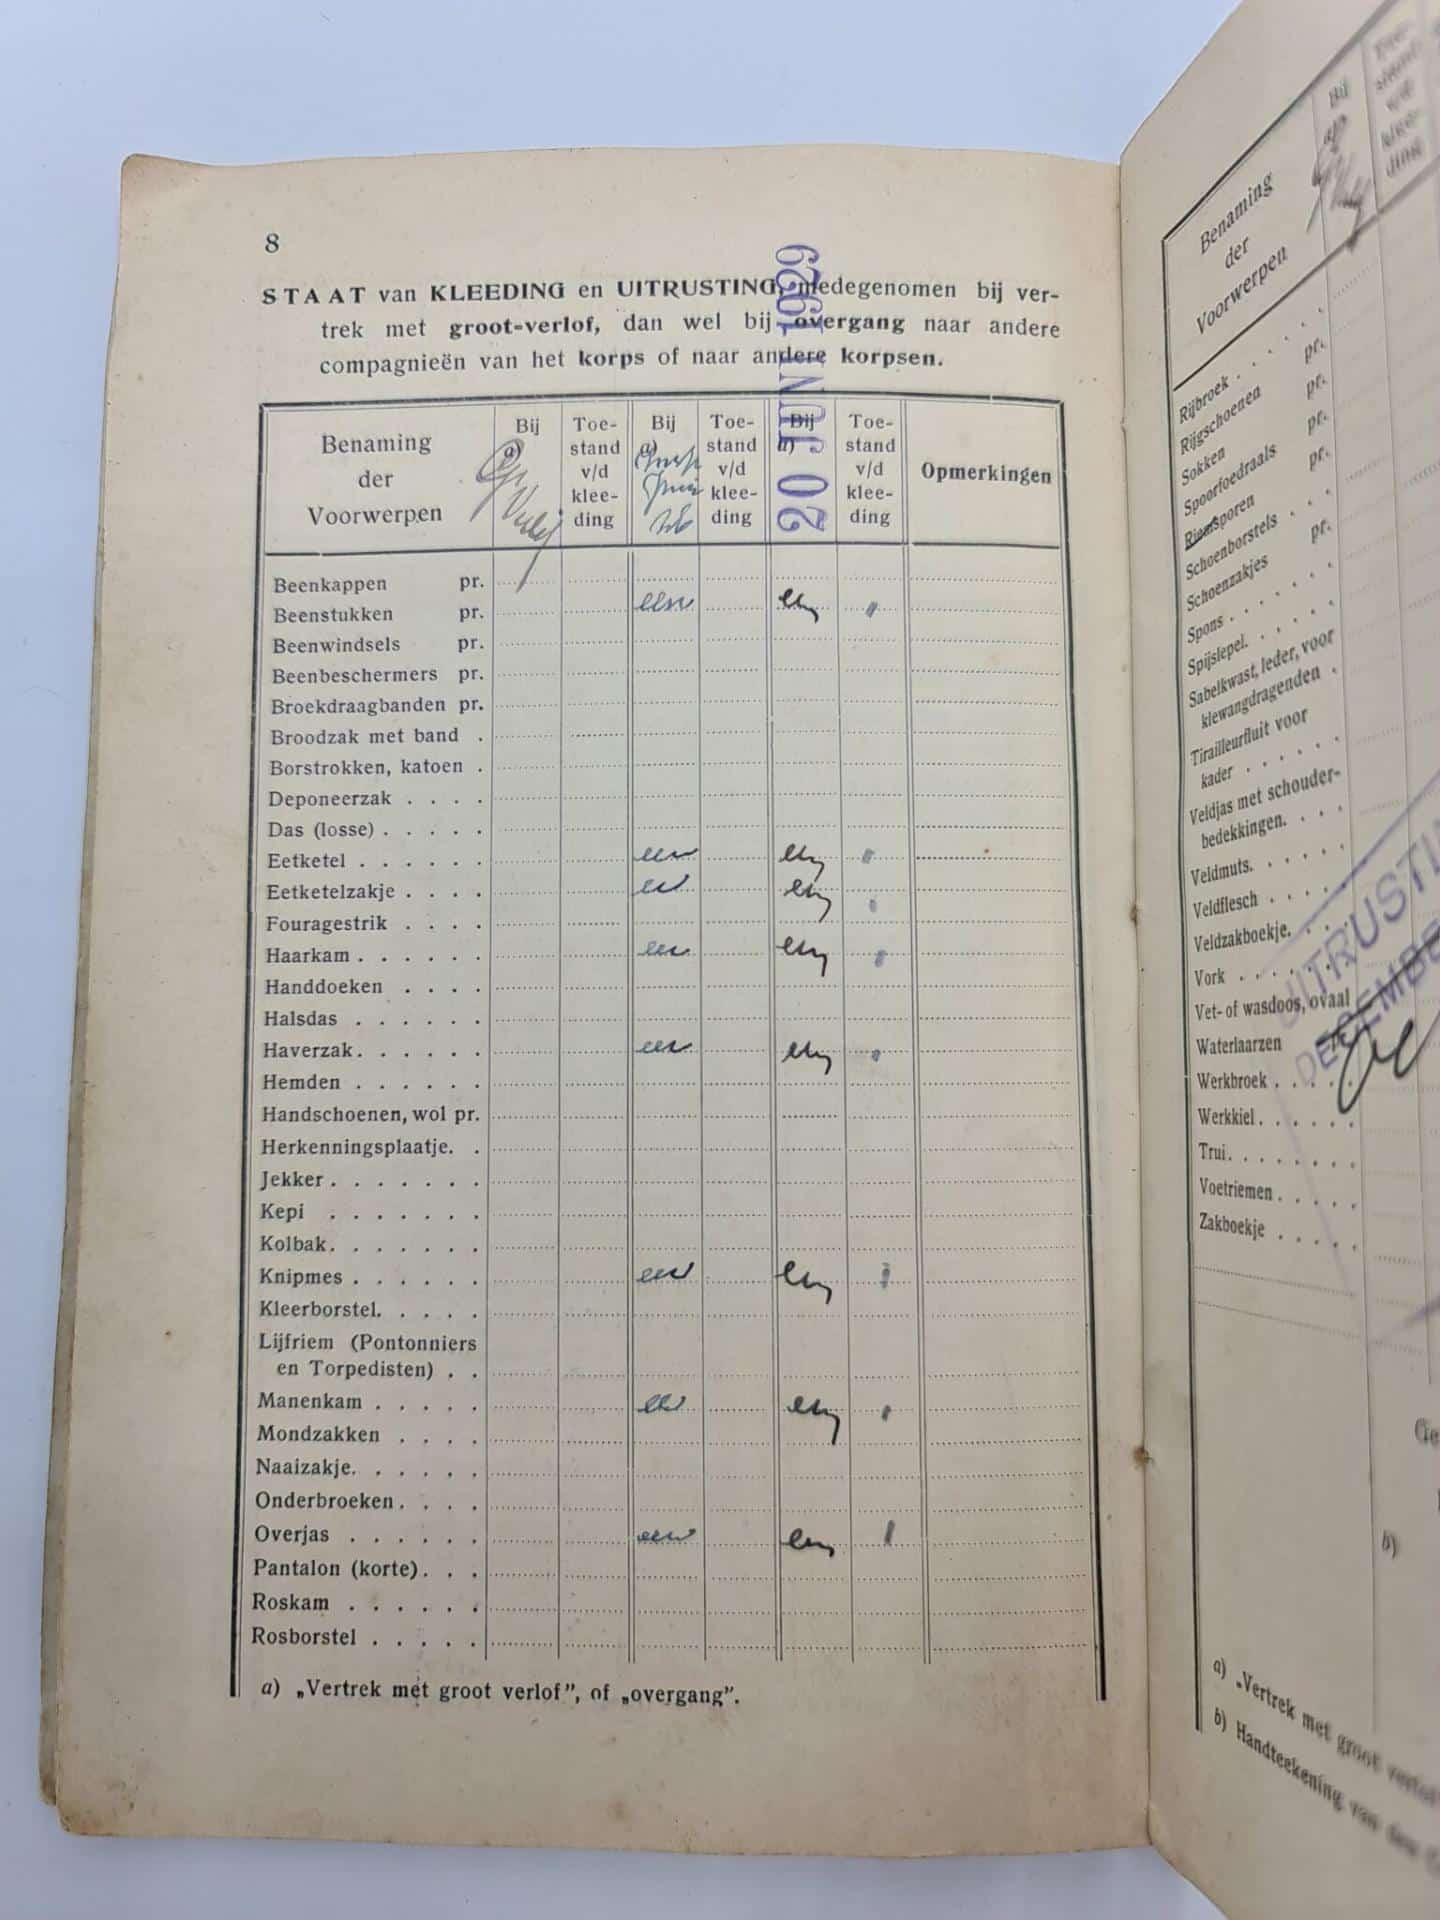 8
STAAT van KLEEDING en UITRUSTING, medegenomen bij ver-
trek met groot-verlof, dan wel bij overgang naar andere
compagnieën van het korps of naar andere korpsen.
20 JUNI 1929
Benaming der Voorwerpen
Bij a)
Toe-stand v/d klee-ding
Bij a)
Toe-stand v/d klee-ding
Bij a)
Toe-stand v/d klee-ding
Opmerkingen
Beenkappen pr.
Beenstukken pr. een een "
Beenwindsels pr.
Beenbeschermers pr.
Broekdraagbanden pr.
Broodzak met band .
Borstrokken, katoen .
Deponeerzak . . . .
Das (losse) . . . . .
Eetketel . . . . . . een een "
Eetketelzakje . . . . een een "
Fouragestrik . . . .
Haarkam . . . . . . een een "
Handdoeken . . . .
Halsdas . . . . . .
Haverzak . . . . . . een een "
Hemden . . . . . .
Handschoenen, wol pr.
Herkenningsplaatje. .
Jekker . . . . . . .
Kepi . . . . . . .
Kolbak . . . . . . .
Knipmes . . . . . . een een "
Kleerborstel. . . . .
Lijfriem (Pontonniers
en Torpedisten) . .
Manenkam . . . . . een een "
Mondzakken . . . .
Naaizakje. . . . . .
Onderbroeken . . . .
Overjas . . . . . . een een "
Pantalon (korte) . . .
Roskam . . . . . .
Rosborstel . . . . .
a) „Vertrek met groot verlof”, of „overgang”.
Benaming
der
Voorwerpen
Bij
a)
Toe-
stand
v/d
klee-
ding
Rijbroek . . . . . .
Rijgschoenen pr.
Sokken pr.
Spoorfoedraals pr.
Riemsporen pr.
Schoenborstels . .
Schoenzakjes pr.
Spons . . . . . .
Spijslepel. . . . . .
Sabelkwast, leder, voor
klewangdragenden .
Tirailleurfluit voor
kader . . . . . .
Veldjas met schouder-
bedekkingen. . . .
Veldmuts. . . . . .
Veldflesch . . . . .
Veldzakboekje. . . .
Vork . . . . . . .
Vet- of wasdoos, ovaal
Waterlaarzen
Werkbroek . . . . .
Werkkiel . . . . . .
Trui. . . . . . . .
Voetriemen . . . . .
Zakboekje . . . . .
b)
a) „Vertrek met groot verlof
b) Handteekening van den